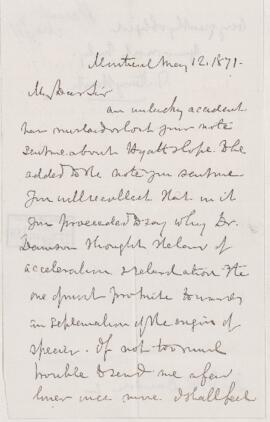 Montreal May 12. 1871.
My Dear Sir
an unlucky accident
has mislaid or lost your note
sent me about Hyatt & Cope. to be
added to the note you sent me
You will recollect that in it
you proceeded to say why Dr.
Dawson thought the law of
acceleration & retardation the
one of most promise towards
an explanation of the origin of
species. If not too much
trouble to send me a few
lines once more. I shall feel